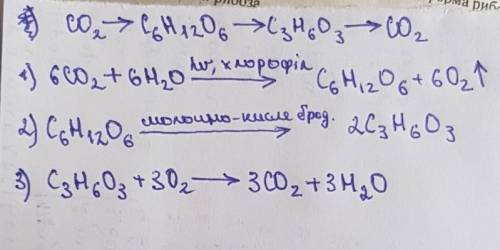 CO₂ → C₆H₁₂O₆ → C₃H₆O₃ → CO₂
1) 6CO₂ + 6H₂O hν, хлорофіл → C₆H₁₂O₆ + 6O₂↑
2) C₆H₁₂O₆ молочно-кисле брод. → 2C₃H₆O₃
3) C₃H₆O₃ + 3O₂ → 3CO₂ + 3H₂O